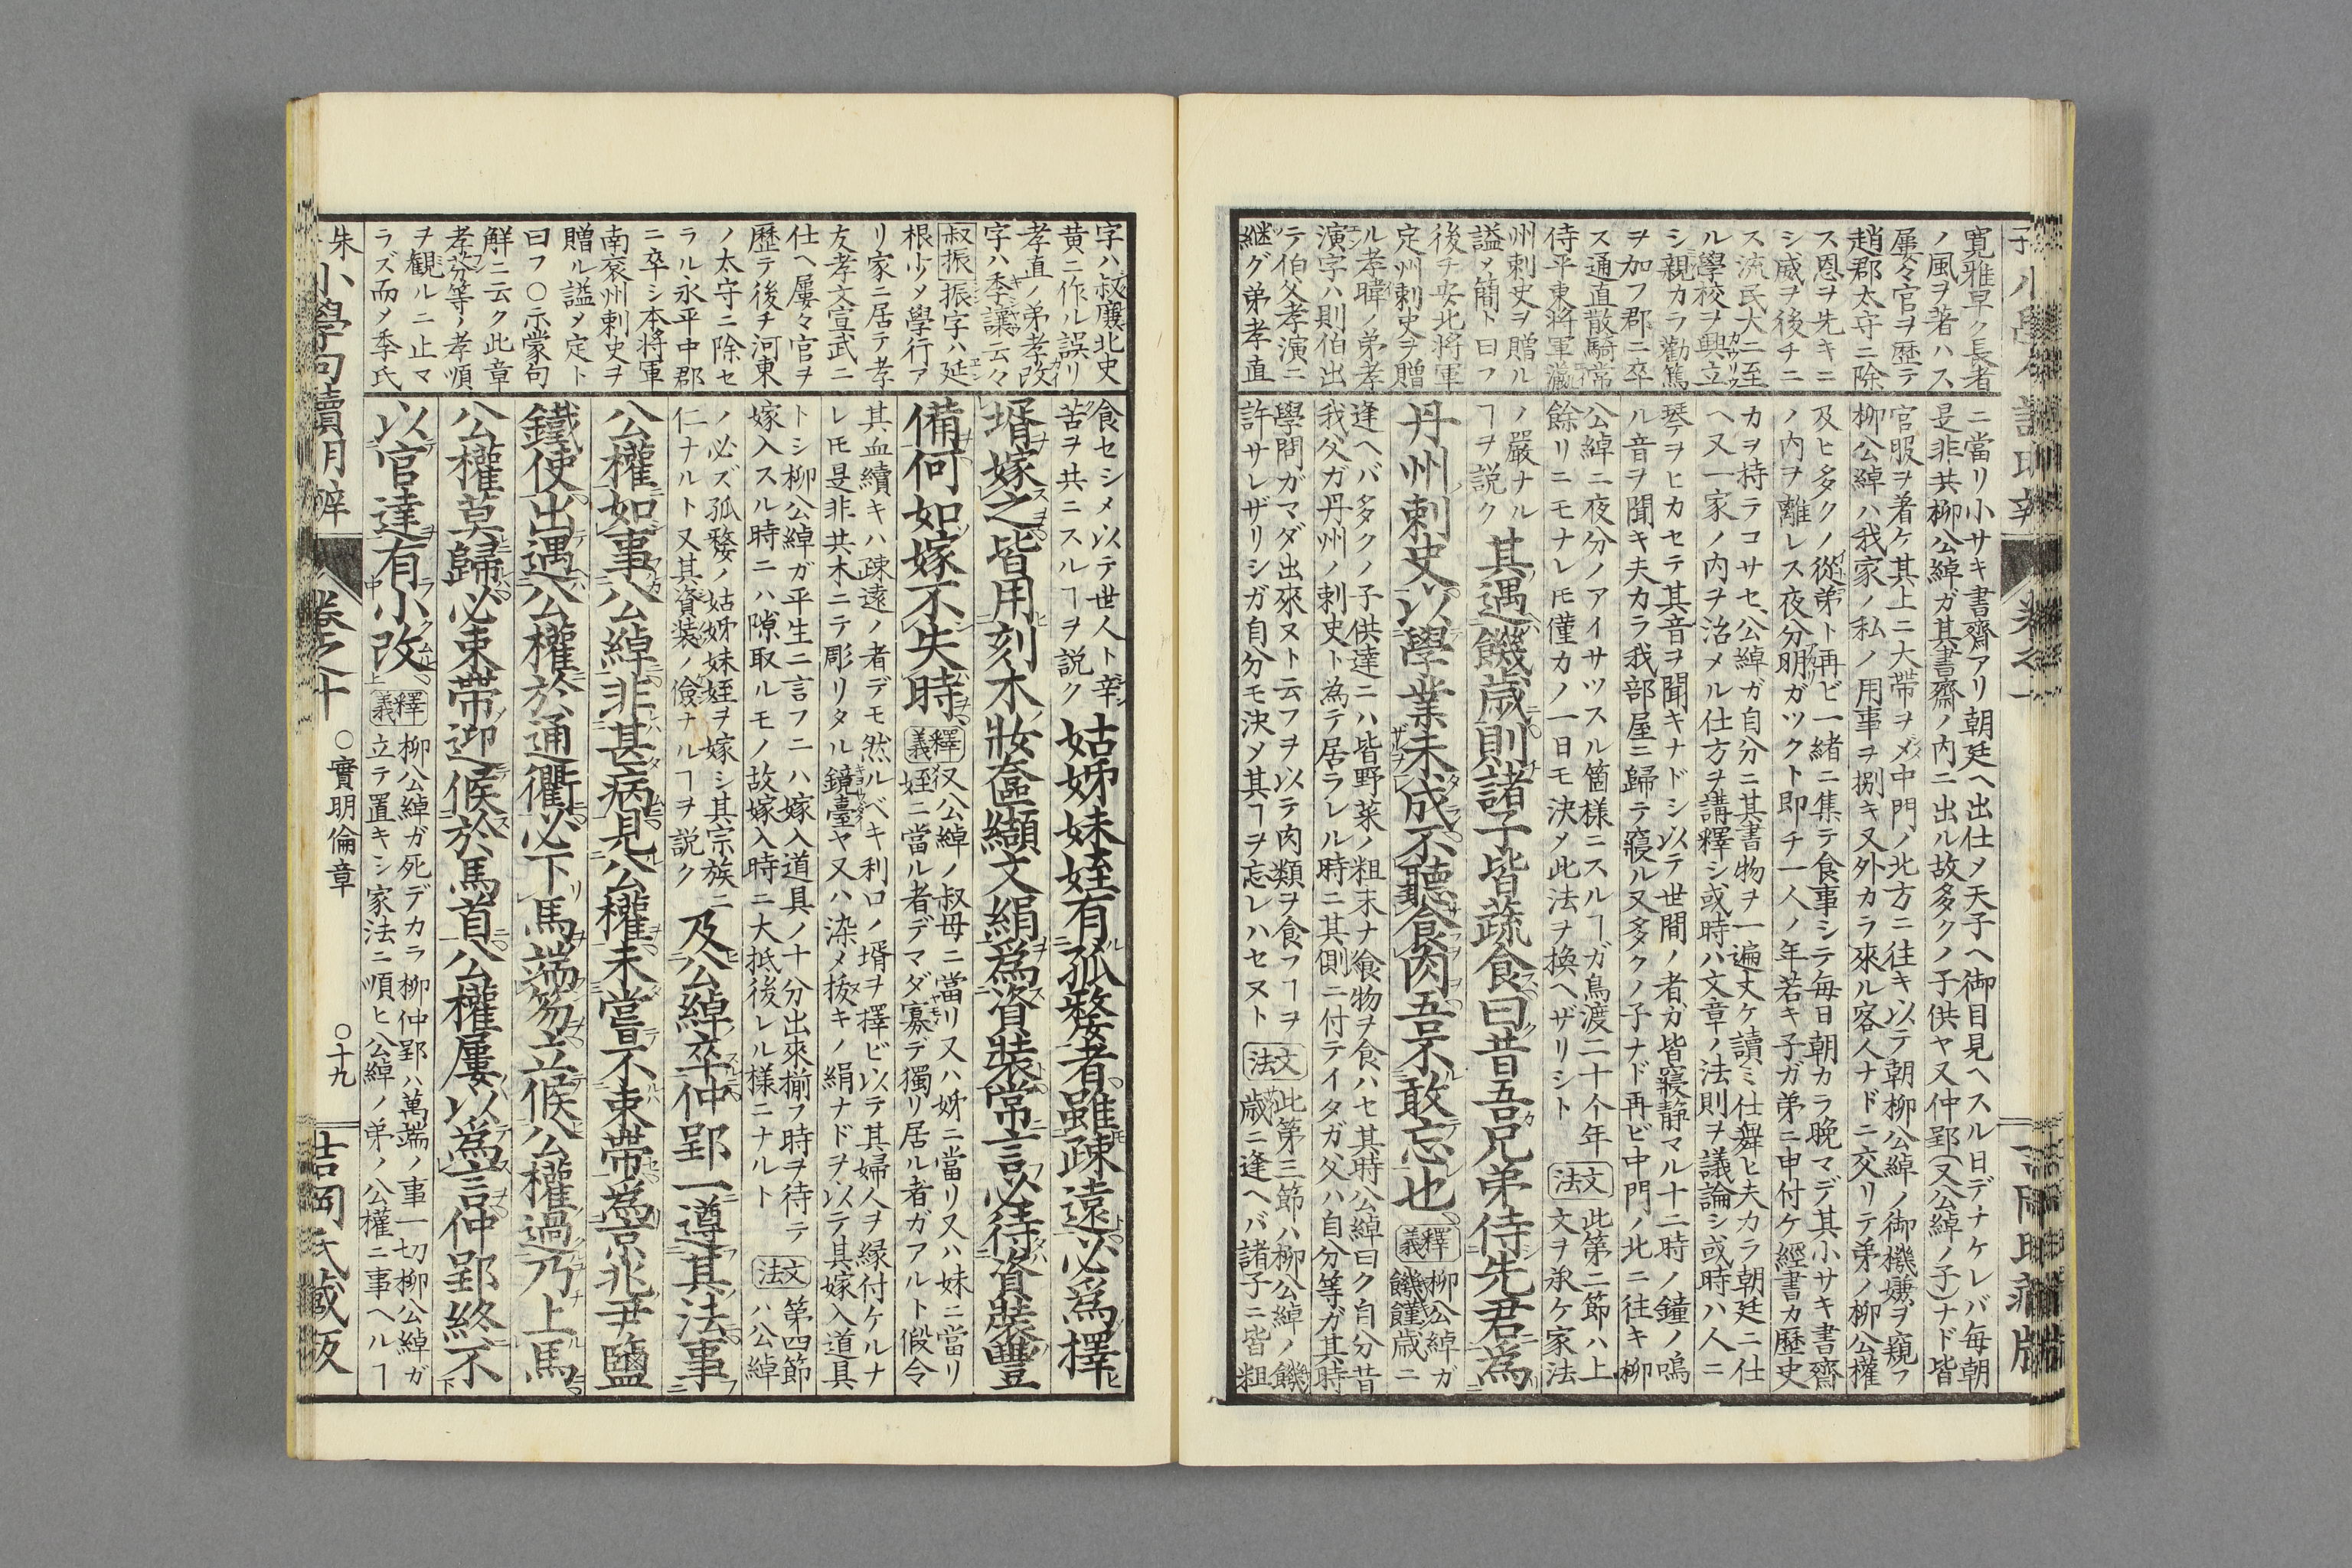 寛雅早ク長者
ノ風ヲ著ハス
屢々官ヲ歴テ
趙郡太守ニ除
ス恩ヲ先キニ
シ威ヲ後チニ
ス流民大ニ至
ル學校ヲ興立
シ親カラ勸篤
ヲ加フ郡ニ卒
ス通直散騎常
侍平東將軍瀛
州刺史ヲ贈ル
謚メ簡ト曰フ
後チ安北將軍
定州刺史ヲ贈
ル孝暐ノ弟孝
演字ハ則伯出
テ伯父孝演ニ
継グ弟孝直
ニ當リ小サキ書齋アリ朝廷ヘ出仕メ天子ヘ御目見ヘスル日デナケレバ毎朝
是非共柳公綽ガ其書齋ノ内ニ出ル故多クノ子供ヤ又仲郢(又公綽ノ子)ナド皆
官服ヲ着ケ其上ニ大帶ヲメ中門ノ北方ニ往キ以テ朝柳公綽ノ御機嫌ヲ窺フ
柳公綽ハ我家ノ私ノ用事ヲ捌キ又外カラ來ル客人ナドニ交リテ弟ノ柳公權
及ヒ多クノ從弟ト再ビ一緒ニ集テ食事シテ毎日朝カラ晩マデ其小サキ書齋
ノ内ヲ離レス夜分明ガツクト即チ一人ノ年若キ子ガ弟ニ申付ケ經書カ歴史
カヲ持テコサセ公綽ガ自分ニ其書物ヲ一遍丈ケ讀ミ仕舞ヒ夫カラ朝廷ニ仕
ヘ又一家ノ内ヲ治メル仕方ヲ講釋シ或時ハ文章ノ法則ヲ議論シ或時ハ人ニ
琴ヲヒカセテ其音ヲ聞キナドシ以テ世間ノ者ガ皆寢静マル十二時ノ鐘ノ鳴
ル音ヲ聞キ夫カラ我部屋ニ歸テ寢ル又多クノ子ナド再ビ中門ノ北ニ往キ柳
公綽ニ夜分ノアイサツスル箇様ニスルヿガ鳥渡二十个年 文法 此第二節ハ上
餘リニモナレ𪜈僅カノ一日モ決メ此法ヲ換ヘザリシト 文ヲ承ケ家法
ノ嚴ナル
ヿヲ説ク
其遇饑歳則諸子皆蔬食曰昔吾兄弟侍先君為
丹州刺史以學業未成不聽食肉吾不敢忘也 釋義 柳公綽ガ
饑饉歳ニ
逢ヘバ多クノ子供達ニハ皆野菜ノ粗末ナ飡物ヲ食ハセ其時公綽曰ク自分昔
我父ガ丹州ノ刺史ト為テ居ラレル時ニ其側ニ付テイタガ父ハ自分等ガ其時
學問ガマダ出來ヌト云フヲ以テ肉類ヲ食フヿヲ 文法 此第三節ハ柳公綽ノ饑
許サレザリシガ自分モ決メ其ヿヲ忘レハセヌト 歳ニ逢ヘバ諸子ニ皆粗
字ハ叔廣北史
黄ニ作ル誤リ
孝直ノ弟孝改
字ハ季讓云々
叔振 振字ハ延
根少メ學行ア
リ家ニ居テ孝
友孝文宣武ニ
仕ヘ屢々官ヲ
歴テ後チ河東
ノ太守ニ除セ
ラル永平中郡
ニ卒シ本將軍
南兗州刺史ヲ
贈ル謚メ定ト
曰フ〇示蒙句
解ニ云ク此章
孝芬等ノ孝順
ヲ観ルニ止マ
ラズ而メ季氏
食セシメ以テ世人ト辛
苦ヲ共ニスルヿヲ説ク
姑姊妹姪有孤嫠者雖疎遠必為擇
壻嫁之皆用刻木妝奩纈文絹為資裝常言必待資裝豐
備何如嫁不失時 釋義 又公綽ノ叔母ニ當リ又ハ姊ニ當リ又ハ妹ニ當リ
姪ニ當ル者デマダ寡デ獨リ居ル者ガアルト假令
其血續キハ疎遠ノ者デモ然ルベキ利口ノ壻ヲ擇ビ以テ其婦人ヲ縁付ケルナ
レ𪜈是非共木ニテ彫リタル鏡臺ヤ又ハ染メ拔キノ絹ナドヲ以テ其嫁入道具
トシ柳公綽ガ平生ニ言フニハ嫁入道具ノ十分出來揃フ時ヲ待テ 文法 第四節
嫁入スル時ニハ隙取ルモノ故嫁入時ニ大抵後レル様ニナルト ハ公綽
ノ必ズ孤嫠ノ姑姊妹姪ヲ嫁シ其宗族ニ
仁ナルト又其資装ノ儉ナルヿヲ説ク
及公綽卒仲郢一遵其法事
公權如事公綽非甚病見公權未嘗不束帶為京兆尹鹽
鐵使出遇公權於通衢必下馬端笏立候公權過乃上馬
公權莫歸必束帶迎候於馬首公權屢以為言仲郢終不
以官達有小改 釋義 柳公綽ガ死デカラ柳仲郢ハ萬端ノ事一切柳公綽ガ
立テ置キシ家法ニ順ヒ公綽ノ弟ノ公權ニ事ヘルヿ
小學句讀明辨 卷之十 〇實明倫章 〇十九 吉岡氏藏版